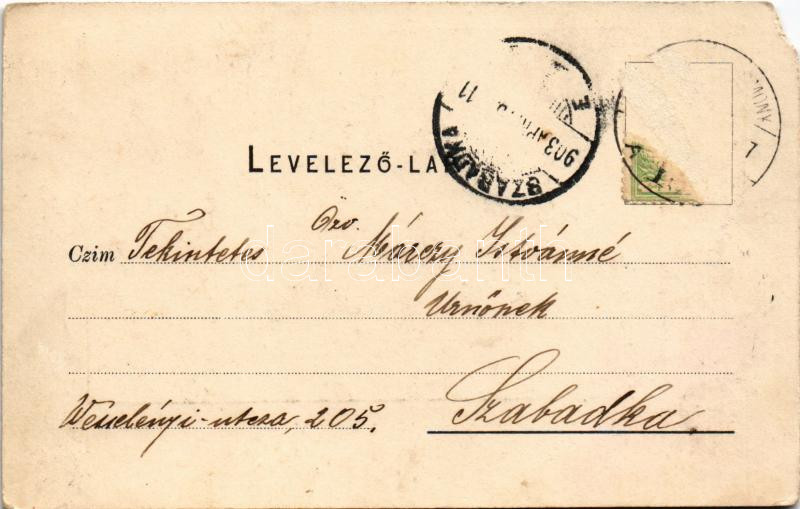 LEVELEZŐ-LA
SZABADKA
903 APR. 11
Özv.
Czim Tekintetes Móczy Istvánné
Urnőnek
Wesselényi-utcza, 205. Szabadka
darabanth